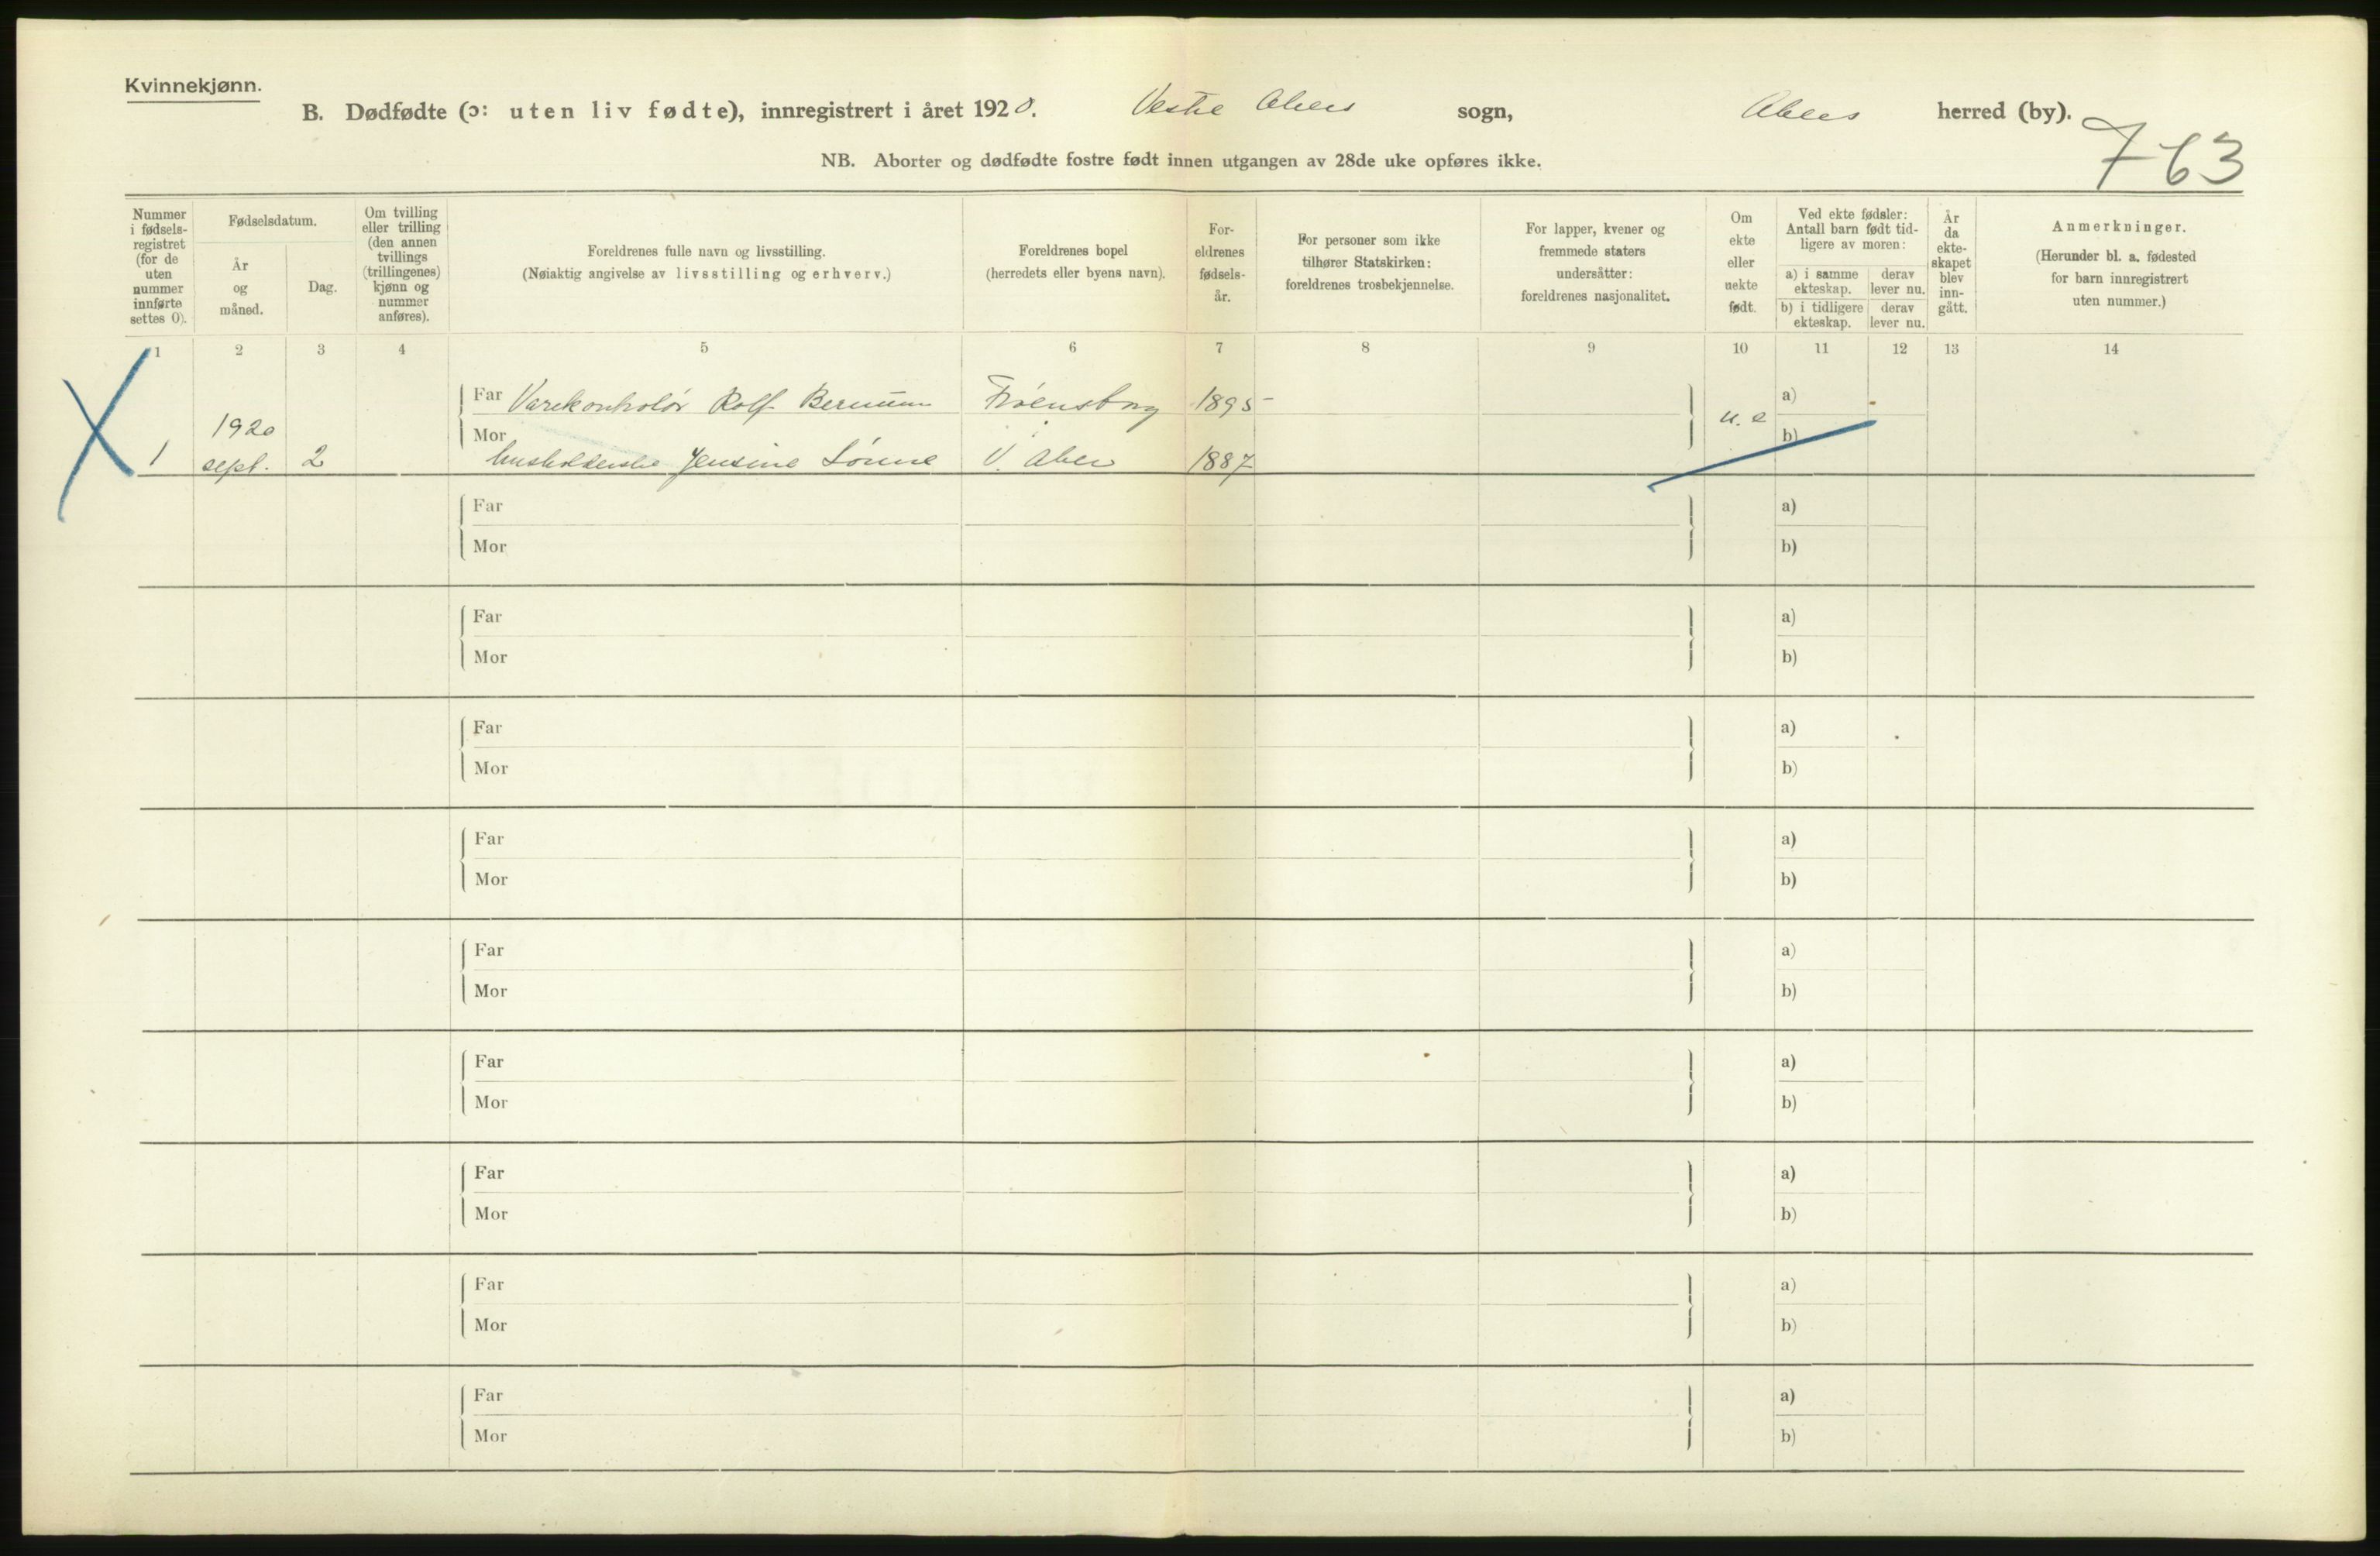 Kvinnekjønn.
B. Dødfødte (ɔ: uten liv fødte), innregistrert i året 1920. Vestre Akers sogn, Akers herred (by).
763
NB. Aborter og dødfødte fostre født innen utgangen av 28de uke opføres ikke.
Nummer i fødsels-registret (for de uten nummer innførte settes 0).
Fødselsdatum.
År og måned.
Dag.
Om tvilling eller trilling (den annen tvillings (trillingenes) kjønn og nummer anføres).
Foreldrenes fulle navn og livsstilling.
(Nøiaktig angivelse av livsstilling og erhverv.)
Foreldrenes bopel
(herredets eller byens navn).
For-eldrenes fødsels-år.
For personer som ikke tilhører Statskirken: foreldrenes trosbekjennelse.
For lapper, kvener og fremmede staters undersåtter: foreldrenes nasjonalitet.
Om ekte eller uekte født.
Ved ekte fødsler: Antall barn født tid-ligere av moren:
a) i samme ekteskap.
derav lever nu.
b) i tidligere ekteskap.
derav lever nu.
År da ekte-skapet blev inn-gått.
Anmerkninger.
(Herunder bl. a. fødested for barn innregistrert uten nummer.)
1 2 3 4 5 6 7 8 9 10 11 12 13 14
Far Varekontrolør Rolf Frøensborg 1895 a)
1920 u. e
Mor b)
1 sept. 2 husholderske Jensine Lønne V. Aker 1887
Far a)
Mor b)
Far a)
Mor b)
Far a)
Mor b)
Far a)
Mor b)
Far a)
Mor b)
Far a)
Mor b)
Far a)
Mor b)
Far a)
Mor b)
Far a)
Mor b)